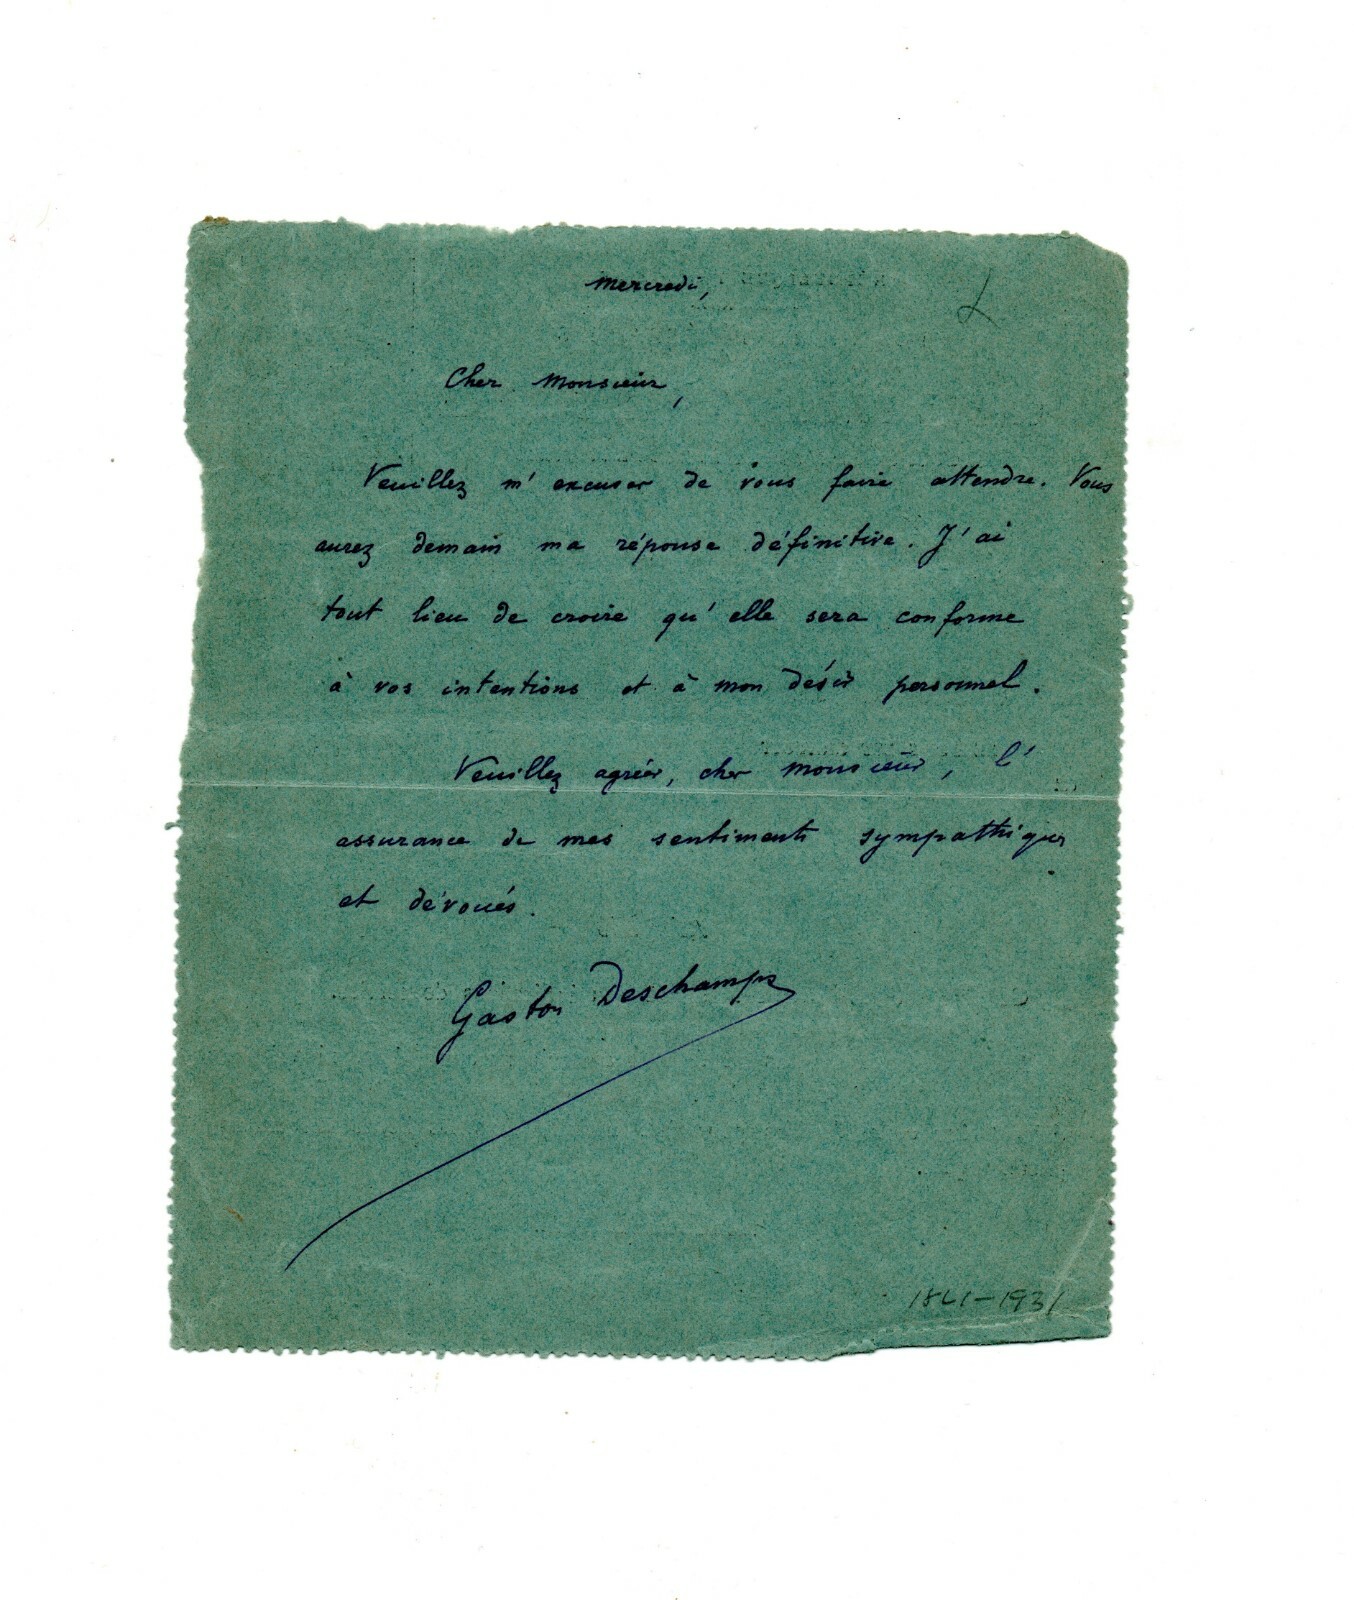 Mercredi,
Cher Monsieur,
Veuillez m'excuser de vous faire attendre. Vous
aurez demain ma réponse définitive. J'ai
tout lieu de croire qu'elle sera conforme
à vos intentions et à mon désir personnel.
Veuillez agréer, cher monsieur, l'
assurance de mes sentiments sympathiques
et dévoués.
Gaston Deschamps
1861-1931